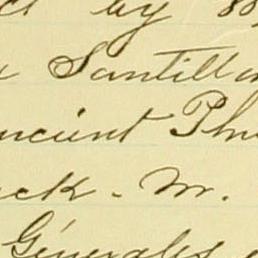 by
Santill
ncient Ph
ck - M.
Générales